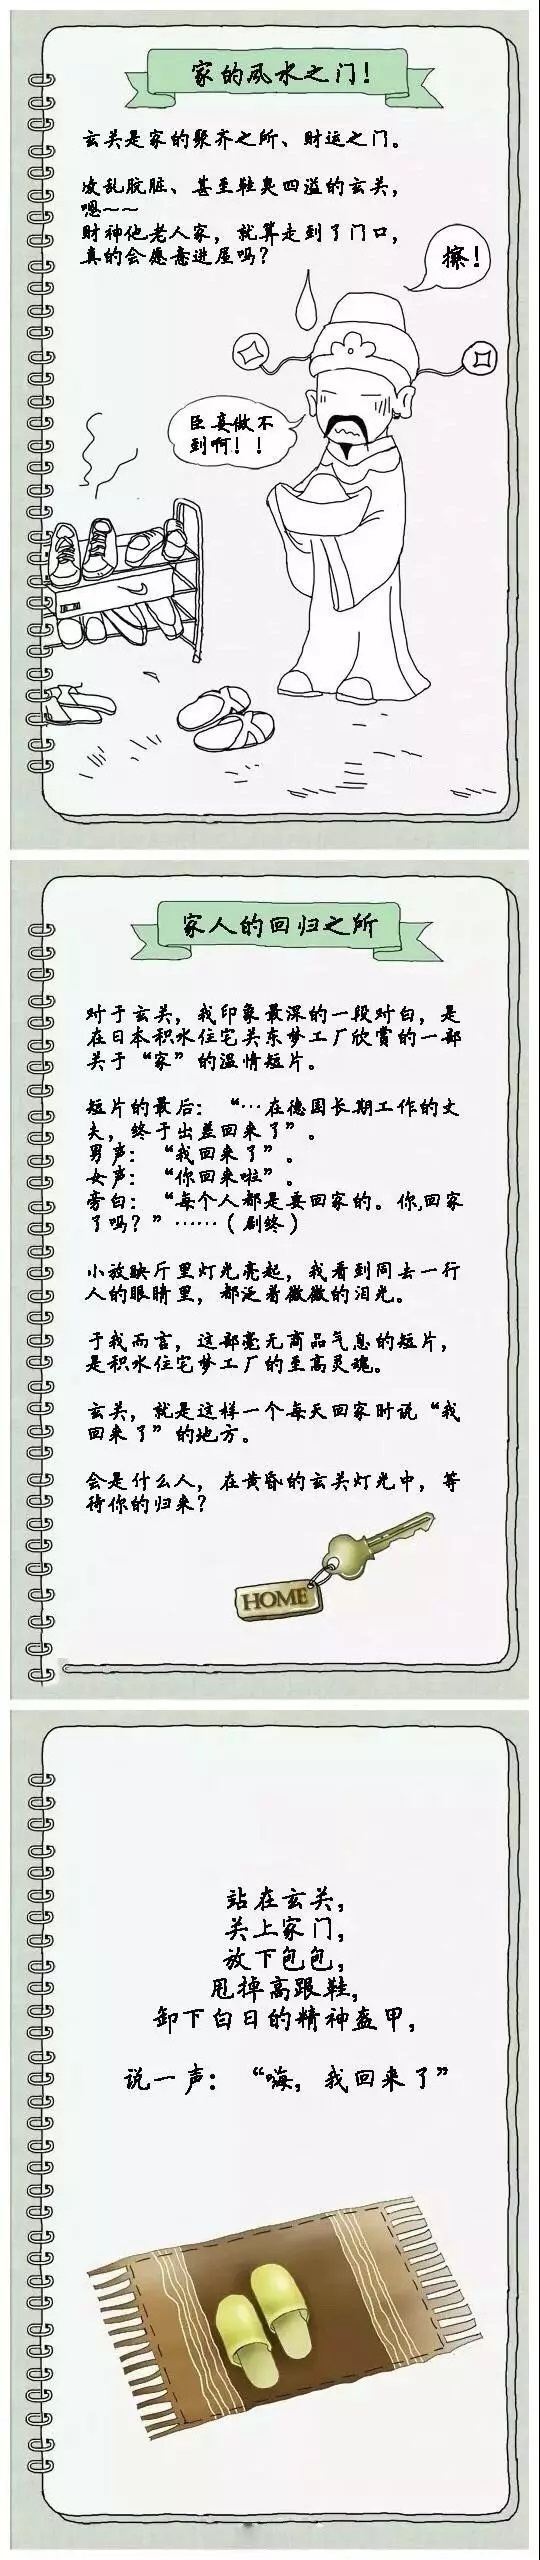 家的风水之门！
玄关是家的聚齐之所、财运之门。
凌乱肮脏、甚至鞋臭四溢的玄关，
嗯～～
财神他老人家，就算走到了门口，
真的会愿意进屋吗？
擦！
臣妾做不
到啊！！
家人的回归之所
对于玄关，我印象最深的一段对白，是
在日本积水住宅关东梦工厂欣赏的一部
关于“家”的温情短片。
短片的最后：“…在德国长期工作的丈
夫，终于出差回来了”。
男声：“我回来了”。
女声：“你回来啦”。
旁白：“每个人都是要回家的。你,回家
了吗？”……（剧终）
小放映厅里灯光亮起，我看到同去一行
人的眼睛里，都泛着微微的泪光。
于我而言，这部毫无商品气息的短片，
是积水住宅梦工厂的至高灵魂。
玄关，就是这样一个每天回家时说“我
回来了”的地方。
会是什么人，在黄昏的玄关灯光中，等
待你的归来？
HOME
站在玄关，
关上家门，
放下包包，
甩掉高跟鞋，
卸下白日的精神盔甲，
说一声：“嗨，我回来了”